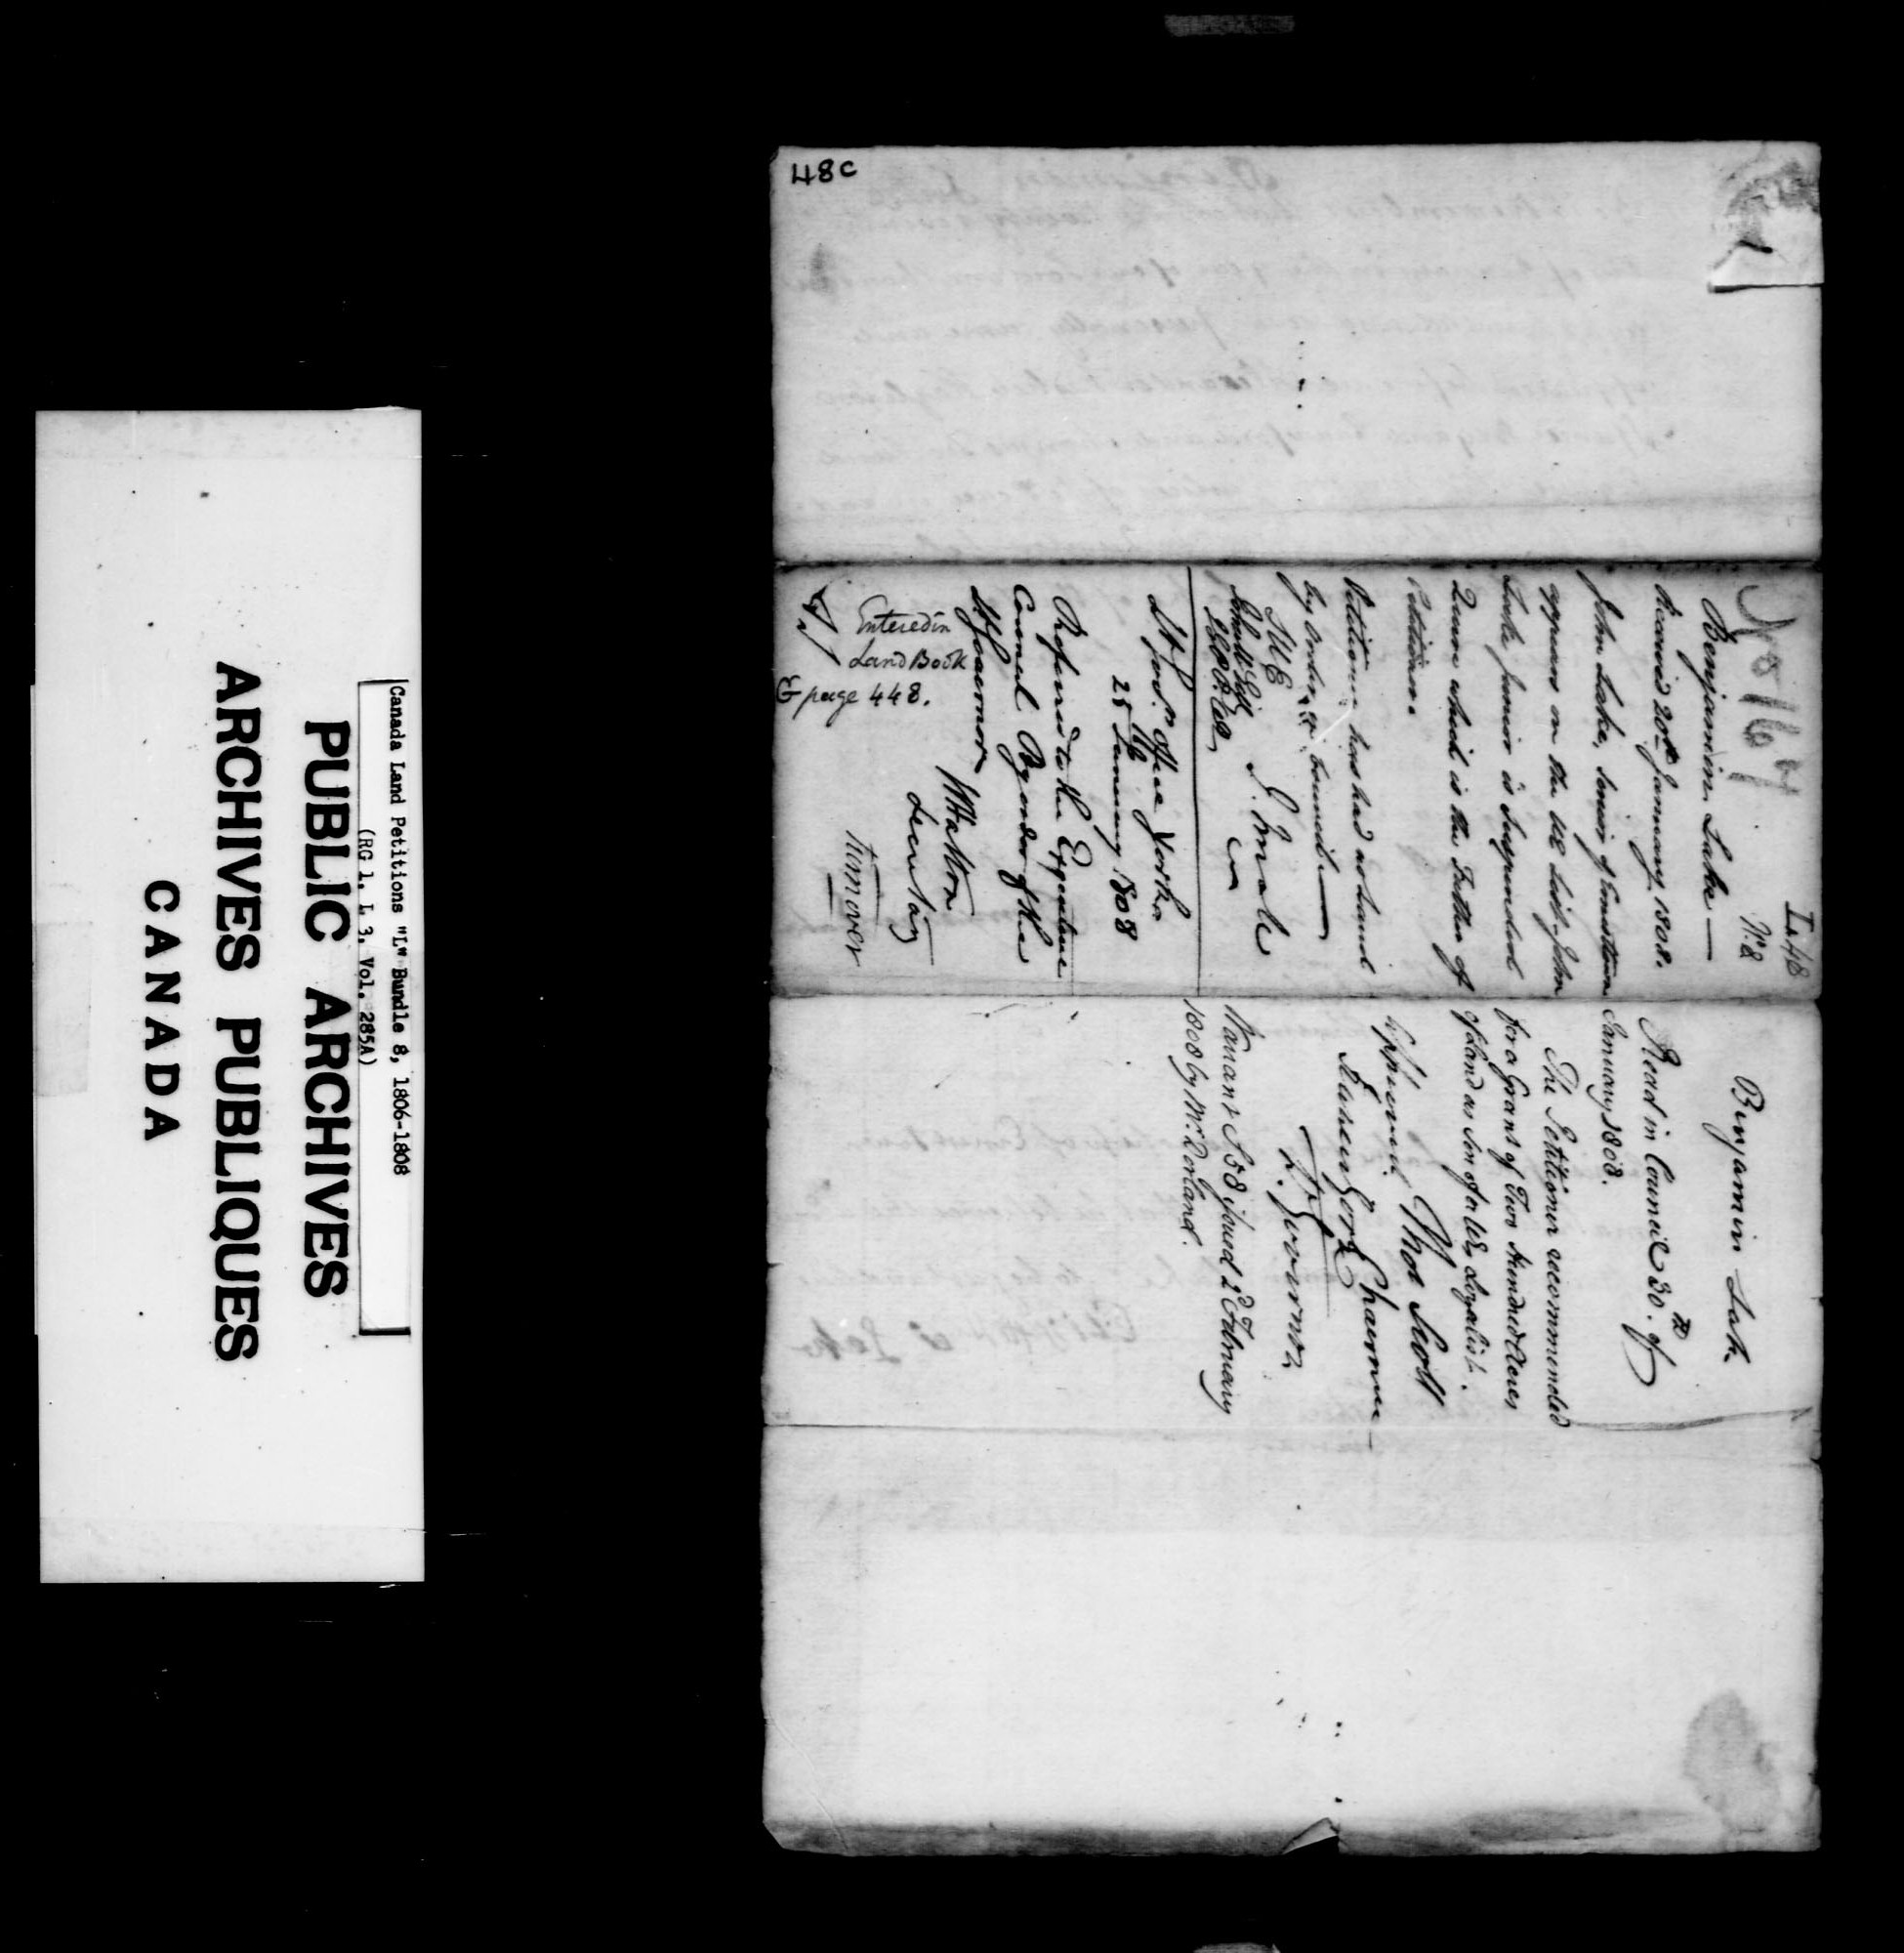 Canada Land Petitions "L" Bundle 8, 1806-1808
(RG 1, L 3, Vol. 285A)
PUBLIC ARCHIVES
ARCHIVES PUBLIQUES
CANADA
48c
L. 48
No. 8
No 167
Benjamin Lake —
Received 20th January 1808.
John Lake, Senior of Ernestown
appears on the UE List. John
Lake junior is Suspended
Quere which is the Father of
Petitioner.
Petitioner has had no Land
by Order in Council —
J. Small
Lt Govrs Office York
25 January 1808
Referred to the Executive
Council By order of the
Lt Governor
W Halton
Secretary
Entered in
Land Book
G page 448.
turn over
Benjamin Lake
Read in Council 30th of
January 1808.
The Petitioner recommended
for a Grant of Two Hundred Acres
of Land as Son of a UE Loyalist.
Thos Scott
Chairman
Approved
FG
Lt Governor
Warrant 558 issued 2d February
1808 by Mr Dorland.